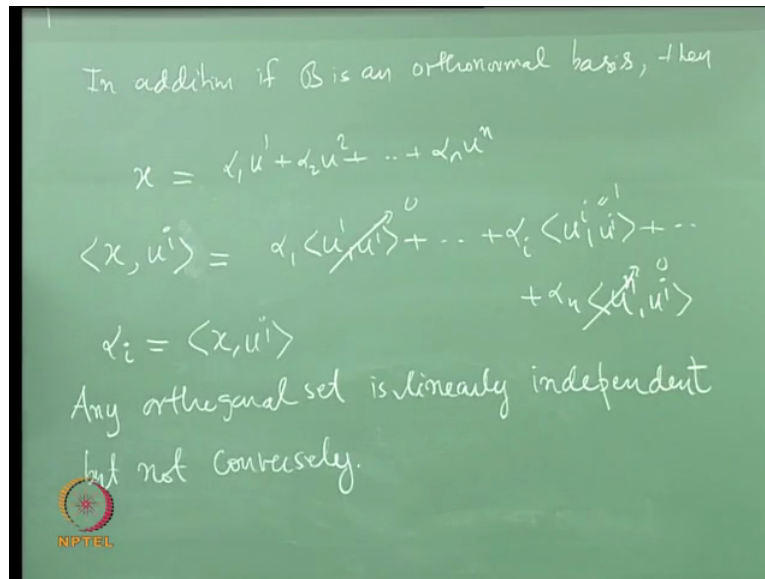 In addition if B is an orthonormal basis, then
x = α₁u¹ + α₂u² + ·· + αₙuⁿ
⟨x, uⁱ⟩ = α₁⟨u¹, uⁱ⟩⁰ + ·· + αᵢ⟨uⁱ, uⁱ⟩ ⁼¹ + ··
+ αₙ⟨uⁿ, uⁱ⟩⁰
αᵢ = ⟨x, uⁱ⟩
Any orthogonal set is linearly independent
but not conversely.
NPTEL